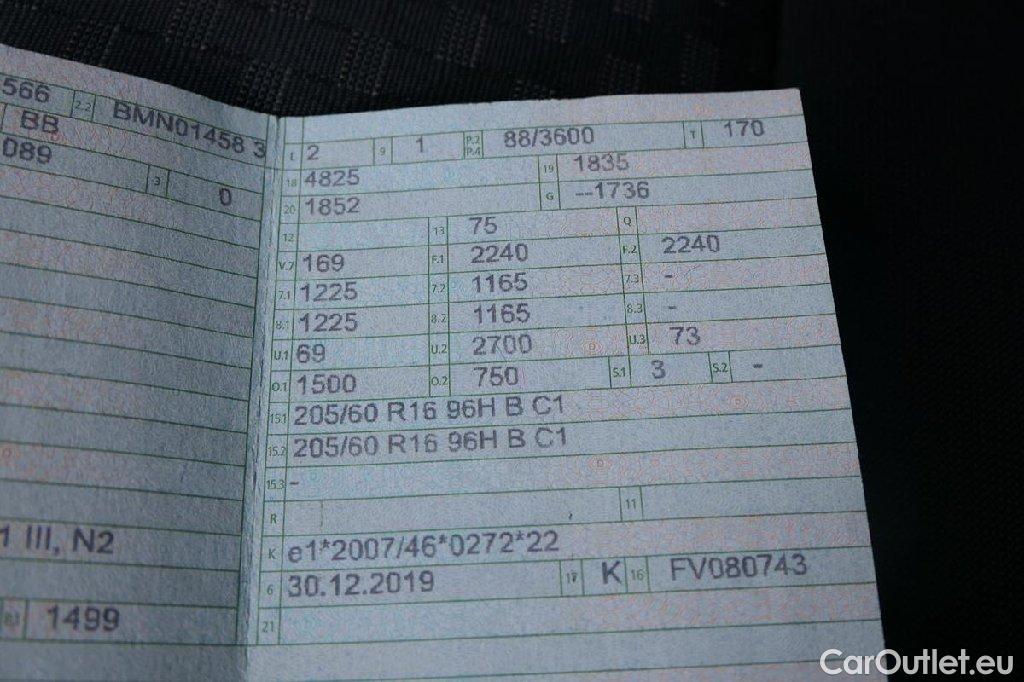 566 2.2 BMN01458 3
BB
089 3 0
L 2 9 1 P.2 P.4 88/3600 T 170
18 4825 19 1835
20 1852 G --1736
12 13 75 Q
V.7 169 F.1 2240 F.2 2240
7.1 1225 7.2 1165 7.3 -
8.1 1225 8.2 1165 8.3 -
U.1 69 U.2 2700 U.3 73
O.1 1500 O.2 750 S.1 3 S.2 -
15.1 205/60 R16 96H B C1
15.2 205/60 R16 96H B C1
15.3 -
R 11
1 III, N2
K e1*2007/46*0272*22
6 30.12.2019 17 K 16 FV080743
1499
21
CarOutlet.eu